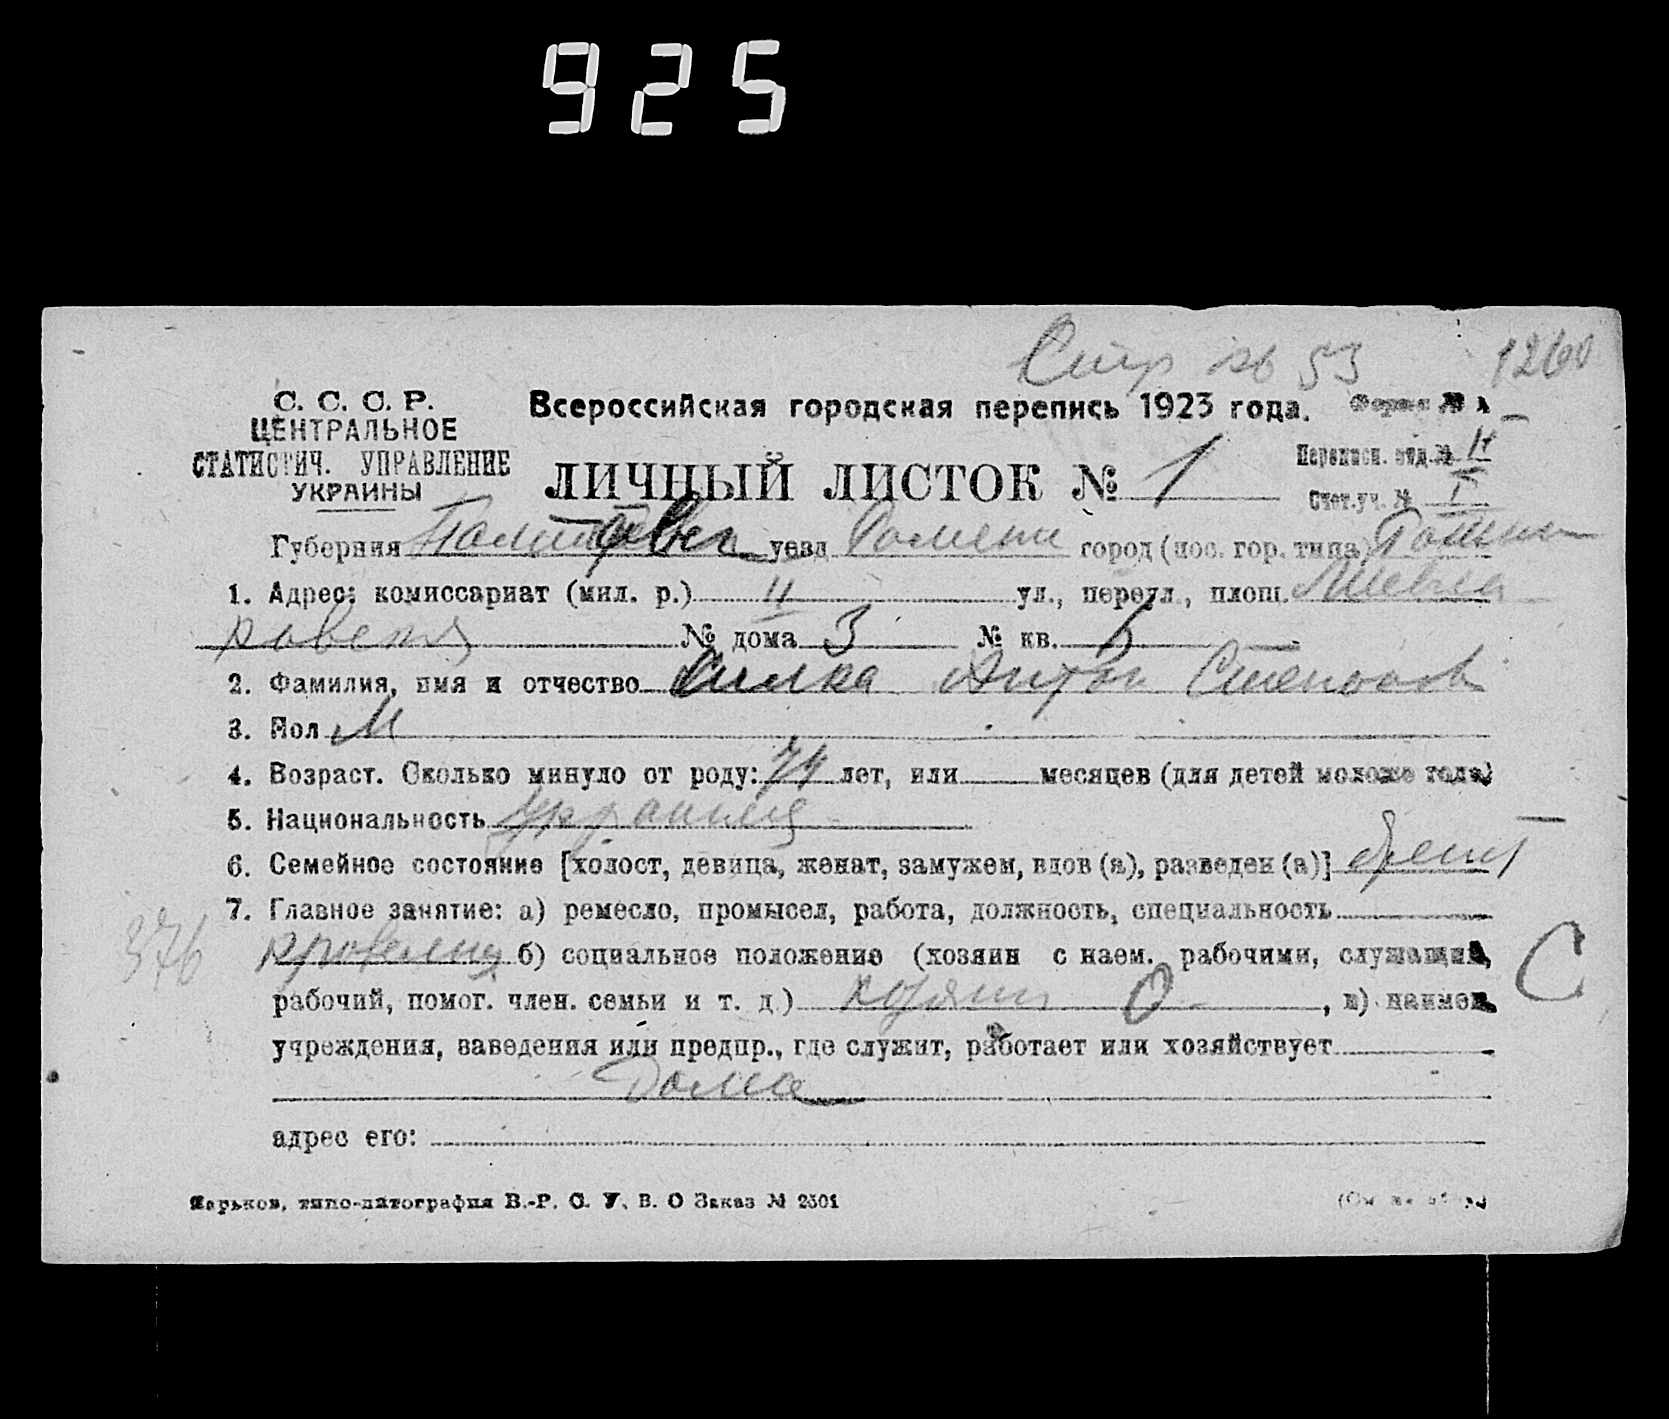 925
Стр № 53 1260
С. С. С. Р.
ЦЕНТРАЛЬНОЕ
СТАТИСТИЧ. УПРАВЛЕНИЕ
УКРАИНЫ
Всероссийская городская перепись 1923 года.
Форма № 1
ЛИЧНЫЙ ЛИСТОК № 1
Переписн. отд. № II
Счет. уч. № I
Губерния уезд Ромени город (пос. гор. типа) Ромни
1. Адрес: комиссариат (мил. р.) II ул., переул., площ.
№ дома 3 № кв.
2. Фамилия, имя и отчество Антон Степанов
3. Пол М
4. Возраст. Сколько минуло от роду: 74 лет, или месяцев (для детей моложе года)
5. Национальность украинец
6. Семейное состояние [холост, девица, женат, замужем, вдов (а), разведен (а)] женат
7. Главное занятие: а) ремесло, промысел, работа, должность, специальность
376 б) социальное положение (хозяин с наем. рабочими, служащий, С
рабочий, помог. член. семьи и т. д.) хозяин О , в) наимен.
учреждения, заведения или предпр., где служит, работает или хозяйствует
Дома
адрес его:
Харьков, типо-литография В.-Р. С. У. В. О Заказ № 2501